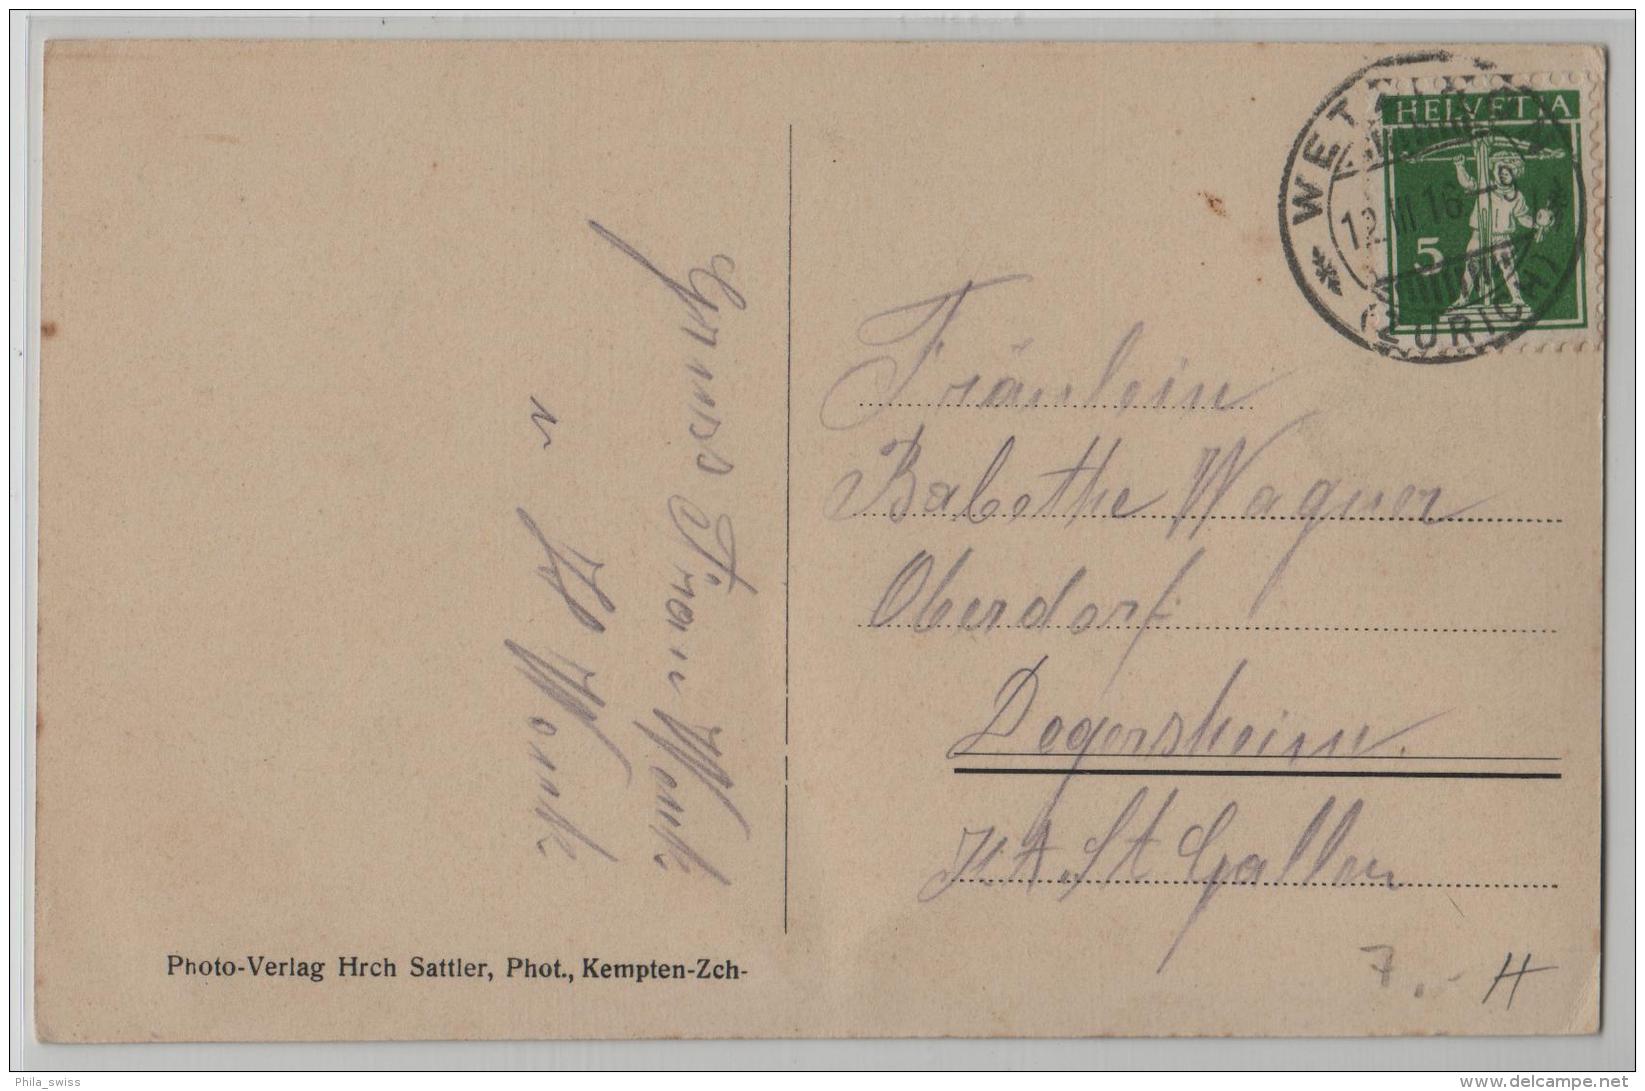 Fräulein
Babethe Wagner
Oberdorf
Degersheim.
Kt. St Gallen
Wenk
u
Wenk
Photo-Verlag Hrch Sattler, Phot., Kempten-Zch-
HELVETIA
5
12.III 16
(ZÜRICH)
7.-
H
Phila_swiss
www.delcampe.net